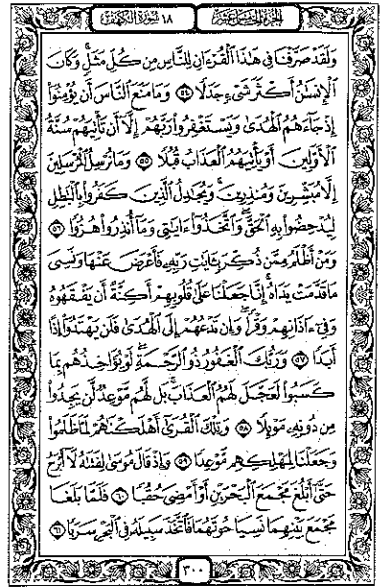 الجزء الخامس عشر ١٨ سورة الكهف
وَلَقَدْ صَرَّفْنَا فِي هَٰذَا ٱلْقُرْءَانِ لِلنَّاسِ مِن كُلِّ مَثَلٍ وَكَانَ
ٱلْإِنسَٰنُ أَكْثَرَ شَيْءٍ جَدَلًا ٥٤ وَمَا مَنَعَ ٱلنَّاسَ أَن يُؤْمِنُوٓا۟
إِذْ جَآءَهُمُ ٱلْهُدَىٰ وَيَسْتَغْفِرُوا۟ رَبَّهُمْ إِلَّآ أَن تَأْتِيَهُمْ سُنَّةُ
ٱلْأَوَّلِينَ أَوْ يَأْتِيَهُمُ ٱلْعَذَابُ قُبُلًا ٥٥ وَمَا نُرْسِلُ ٱلْمُرْسَلِينَ
إِلَّا مُبَشِّرِينَ وَمُنذِرِينَ وَيُجَٰدِلُ ٱلَّذِينَ كَفَرُوا۟ بِٱلْبَٰطِلِ
لِيُدْحِضُوا۟ بِهِ ٱلْحَقَّ وَٱتَّخَذُوٓا۟ ءَايَٰتِي وَمَآ أُنذِرُوا۟ هُزُوًا ٥٦
وَمَنْ أَظْلَمُ مِمَّن ذُكِّرَ بِـَٔايَٰتِ رَبِّهِۦ فَأَعْرَضَ عَنْهَا وَنَسِيَ
مَا قَدَّمَتْ يَدَاهُ إِنَّا جَعَلْنَا عَلَىٰ قُلُوبِهِمْ أَكِنَّةً أَن يَفْقَهُوهُ
وَفِيٓ ءَاذَانِهِمْ وَقْرًا وَإِن تَدْعُهُمْ إِلَى ٱلْهُدَىٰ فَلَن يَهْتَدُوٓا۟ إِذًا
أَبَدًا ٥٧ وَرَبُّكَ ٱلْغَفُورُ ذُو ٱلرَّحْمَةِ لَوْ يُؤَاخِذُهُم بِمَا
كَسَبُوا۟ لَعَجَّلَ لَهُمُ ٱلْعَذَابَ بَل لَّهُم مَّوْعِدٌ لَّن يَجِدُوا۟
مِن دُونِهِۦ مَوْئِلًا ٥٨ وَتِلْكَ ٱلْقُرَىٰٓ أَهْلَكْنَٰهُمْ لَمَّا ظَلَمُوا۟
وَجَعَلْنَا لِمَهْلِكِهِم مَّوْعِدًا ٥٩ وَإِذْ قَالَ مُوسَىٰ لِفَتَىٰهُ لَآ أَبْرَحُ
حَتَّىٰٓ أَبْلُغَ مَجْمَعَ ٱلْبَحْرَيْنِ أَوْ أَمْضِيَ حُقُبًا ٦٠ فَلَمَّا بَلَغَا
مَجْمَعَ بَيْنِهِمَا نَسِيَا حُوتَهُمَا فَٱتَّخَذَ سَبِيلَهُۥ فِي ٱلْبَحْرِ سَرَبًا ٦١
٣٠٠